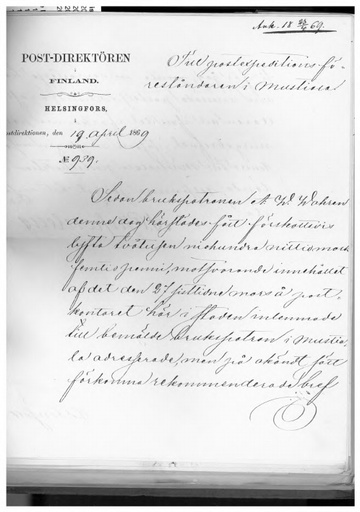 Ank. 18 26/4 69.
POST-DIREKTÖREN
i
FINLAND.
HELSINGFORS,
å
Postdirektionen, den 19 april 1869
№ 939.
Till postexpeditionsfö-
reståndaren i Mustiala
Sedan brukspatronen W Wahren
denna dag härstädes fått förskottsvis
lyfta tvåtusen niohundra nittio mark
femtio penni, motsvarande innehållet
af det den 27 sistlidne mars å post-
kontoret här i staden inlemnade
till bemälde brukspatron i Mustia-
la adresserade, men på okändt sätt
förkomna rekommenderade bref